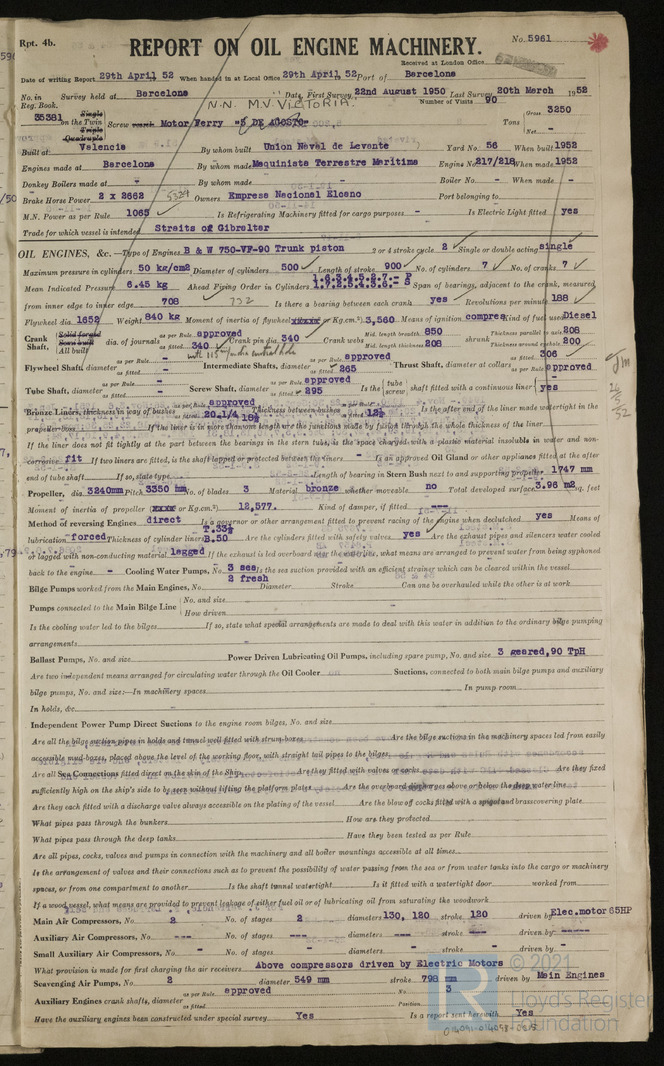 Rpt. 4b.
No. 5961
REPORT ON OIL ENGINE MACHINERY.
Received at London Office
Date of writing Report 29th April 52 When handed in at Local Office 29th April, 52 Port of Barcelona
No. in Survey held at Barcelona Date, First Survey 22nd August 1950 Last Survey 20th March 1952
Reg. Book. N.N. M.V. VICTORIA. Number of Visits 90
35381 on the Single Twin Triple Quadruple Screw vessel Motor Ferry "5 DE AGOSTO" Tons Gross 3250 Net -
Built at Valencia By whom built Union Naval de Levante Yard No. 56 When built 1952
Engines made at Barcelona By whom made Maquinista Terrestre Maritima Engine No. 217/218 When made 1952
Donkey Boilers made at - By whom made - Boiler No. - When made -
Brake Horse Power 2 x 2662 5324 Owners Empresa Nacional Elcano Port belonging to
M.N. Power as per Rule 1065 Is Refrigerating Machinery fitted for cargo purposes - Is Electric Light fitted yes
Trade for which vessel is intended Straits of Gibraltar
OIL ENGINES, &c.—Type of Engines B & W 750-VF-90 Trunk piston 2 or 4 stroke cycle 2 Single or double acting single
Maximum pressure in cylinders 50 kg/cm2 Diameter of cylinders 500 Length of stroke 900 No. of cylinders 7 No. of cranks 7
Mean Indicated Pressure 6.45 kg Ahead Firing Order in Cylinders 1.6.3.4.5.2.7.- P 1.7.2.5.4.3.6.- S Span of bearings, adjacent to the crank, measured
from inner edge to inner edge 708 732 Is there a bearing between each crank yes Revolutions per minute 188
Flywheel dia. 1652 Weight 840 kg Moment of inertia of flywheel (lbs. in.² or Kg.cm.²) 3,560 Means of ignition compres Kind of fuel used Diesel
Crank Shaft, Solid forged Semi built All built dia. of journals as per Rule approved as fitted 340 Crank pin dia. 340 Crank webs Mid. length breadth 850 Mid. length thickness 208 shrunk Thickness parallel to axis 208 Thickness around eyehole 200
with 115 m/m dia central hole
Flywheel Shaft, diameter as per Rule - as fitted - Intermediate Shafts, diameter as per Rule approved as fitted 265 Thrust Shaft, diameter at collars as fitted 306 as per Rule approved
Tube Shaft, diameter as per Rule - as fitted - Screw Shaft, diameter as per Rule approved as fitted 295 Is the tube screw shaft fitted with a continuous liner yes
Bronze Liners, thickness in way of bushes as per Rule approved as fitted 20.1/4 18½ Thickness between bushes as fitted 18½ Is the after end of the liner made watertight in the
propeller boss If the liner is in more than one length are the junctions made by fusion through the whole thickness of the liner
If the liner does not fit tightly at the part between the bearings in the stern tube, is the space charged with a plastic material insoluble in water and non-
corrosive fit If two liners are fitted, is the shaft lapped or protected between the liners - Is an approved Oil Gland or other appliance fitted at the after
end of tube shaft If so, state type Length of bearing in Stern Bush next to and supporting propeller 1747 mm
Propeller, dia. 3240mm Pitch 3350 mm No. of blades 3 Material bronze whether moveable no Total developed surface 3.96 m2 sq. feet
Moment of inertia of propeller (lbs. in.² or Kg.cm.²) 12,577. Kind of damper, if fitted ---
Method of reversing Engines direct Is a governor or other arrangement fitted to prevent racing of the engine when declutched yes Means of
lubrication forced Thickness of cylinder liners T.33½ B.50 Are the cylinders fitted with safety valves yes Are the exhaust pipes and silencers water cooled
or lagged with non-conducting material lagged If the exhaust is led overboard near the waterline, what means are arranged to prevent water from being syphoned
back to the engine - Cooling Water Pumps, No. 3 sea 2 fresh Is the sea suction provided with an efficient strainer which can be cleared within the vessel
Bilge Pumps worked from the Main Engines, No. Diameter Stroke Can one be overhauled while the other is at work
Pumps connected to the Main Bilge Line No. and size
How driven
Is the cooling water led to the bilges If so, state what special arrangements are made to deal with this water in addition to the ordinary bilge pumping
arrangements
Ballast Pumps, No. and size Power Driven Lubricating Oil Pumps, including spare pump, No. and size 3 geared, 90 TpH
Are two independent means arranged for circulating water through the Oil Cooler Suctions, connected to both main bilge pumps and auxiliary
bilge pumps, No. and size:—In machinery spaces In pump room
In holds, &c.
Independent Power Pump Direct Suctions to the engine room bilges, No. and size
Are all the bilge suction pipes in holds and tunnel well fitted with strum-boxes Are the bilge suctions in the machinery spaces led from easily
accessible mud-boxes, placed above the level of the working floor, with straight tail pipes to the bilges
Are all Sea Connections fitted direct on the skin of the Ship Are they fitted with valves or cocks Are they fixed
sufficiently high on the ship's side to be seen without lifting the platform plates Are the overboard discharges above or below the deep water line
Are they each fitted with a discharge valve always accessible on the plating of the vessel Are the blow off cocks fitted with a spigot and brass covering plate
What pipes pass through the bunkers How are they protected
What pipes pass through the deep tanks Have they been tested as per Rule
Are all pipes, cocks, valves and pumps in connection with the machinery and all boiler mountings accessible at all times
Is the arrangement of valves and their connections such as to prevent the possibility of water passing from the sea or from water tanks into the cargo or machinery
spaces, or from one compartment to another Is the shaft tunnel watertight Is it fitted with a watertight door worked from
If a wood vessel, what means are provided to prevent leakage of either fuel oil or of lubricating oil from saturating the woodwork
Main Air Compressors, No. 2 No. of stages 2 diameters 130, 120 stroke 120 driven by Elec.motor 65HP
Auxiliary Air Compressors, No. --- No. of stages --- diameters --- stroke --- driven by ---
Small Auxiliary Air Compressors, No. - No. of stages - diameters - stroke - driven by -
What provision is made for first charging the air receivers Above compressors driven by Electric Motors
Scavenging Air Pumps, No. 2 diameter 549 mm stroke 798 mm driven by Main Engines
Auxiliary Engines crank shafts, diameter as per Rule approved as fitted No. 3 Position
Have the auxiliary engines been constructed under special survey Yes Is a report sent herewith Yes
© 2021
Lloyd's Register
Foundation